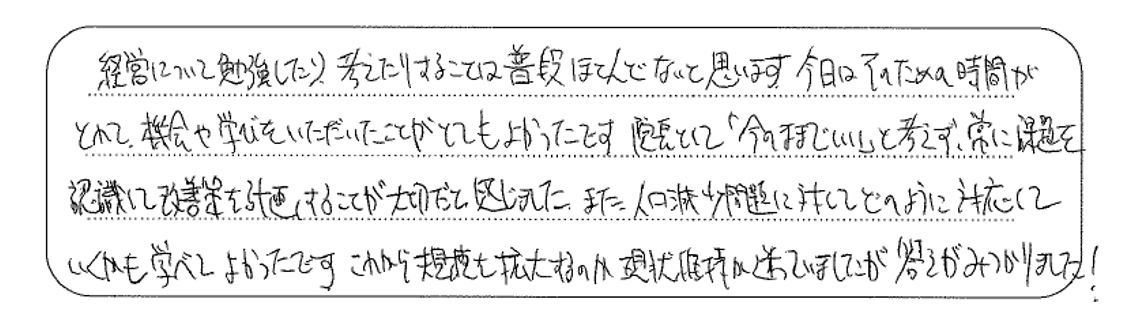 経営について勉強したり、考えたりすることは普段ほとんどないと思います 今日はそのための時間が
とれて、機会や学びをいただいたことがとてもよかったです 院長として「今のままでいい」と考えず、常に課題を
認識して改善策を計画することが大切だと感じました、また、人口減少問題に対してどのように対応して
いくかも学べて よかったです これから規模を拡大するのか 現状維持か迷っていましたが 答えがみつかりました!